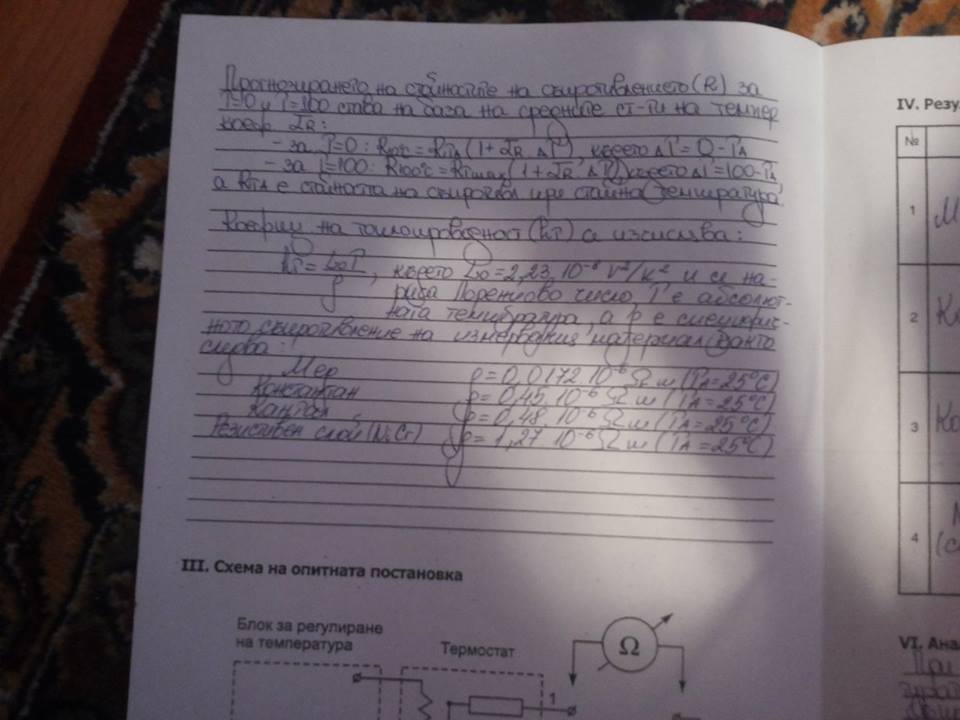 Прогнозирането на стойностите на съпротивлението (R) за
T=0 и T=100 става на база на средните ст-ти на темпер
коеф αR:
- за T=0: R0°C = RTA (1+αR ΔT), където ΔT = 0-TA
- за T=100: R100°C = RTmax (1+αR ΔT) където ΔT=100-TA
а RTA е стойността на съпротивл при стайна температура.
Коефиц на топлопроводност (kT) се изчислява:
kT = L0T / ρ, където L0 = 2,23.10⁻⁸ V²/K² и се на-
рича Лоренцово число, T е абсолют-
ната температура, а ρ е специфич-
ното съпротивление на измервания материал
следва:
Мед ρ = 0,0172.10⁻⁶ Ω m (TA = 25°C)
Константан ρ = 0,45.10⁻⁶ Ω m (TA = 25°C)
Кантал ρ = 0,48.10⁻⁶ Ω m (TA = 25°C)
Резистивен слой (NiCr) ρ = 1,27 10⁻⁶ Ω m (TA = 25°C)
III. Схема на опитната постановка
Блок за регулиране
на температура
Термостат
Ω
1
IV. Резу
№
1 М
2 Ко
3 Ко
4
VI. Ана
При